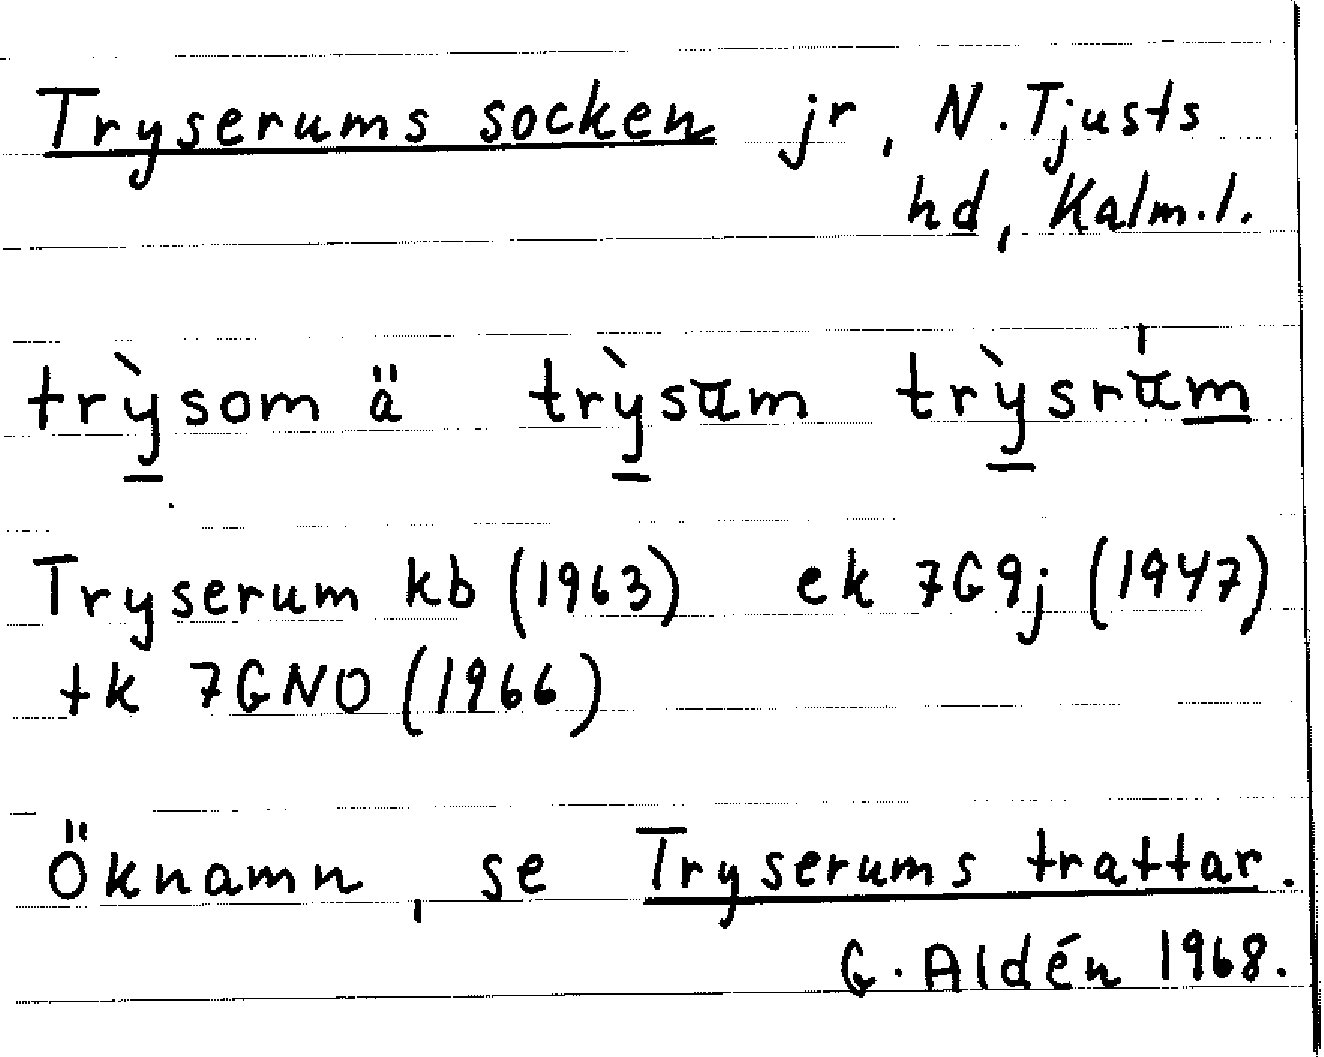 Tryserums socken jr, N. Tjusts
hd, Kalm.l.
trỳsom ä trỳsam trỳsrám
Tryserum kb (1963) ek 7G9j (1947)
tk 7GNO (1966)
Öknamn, se Tryserums trattar.
G. Aldén 1968.